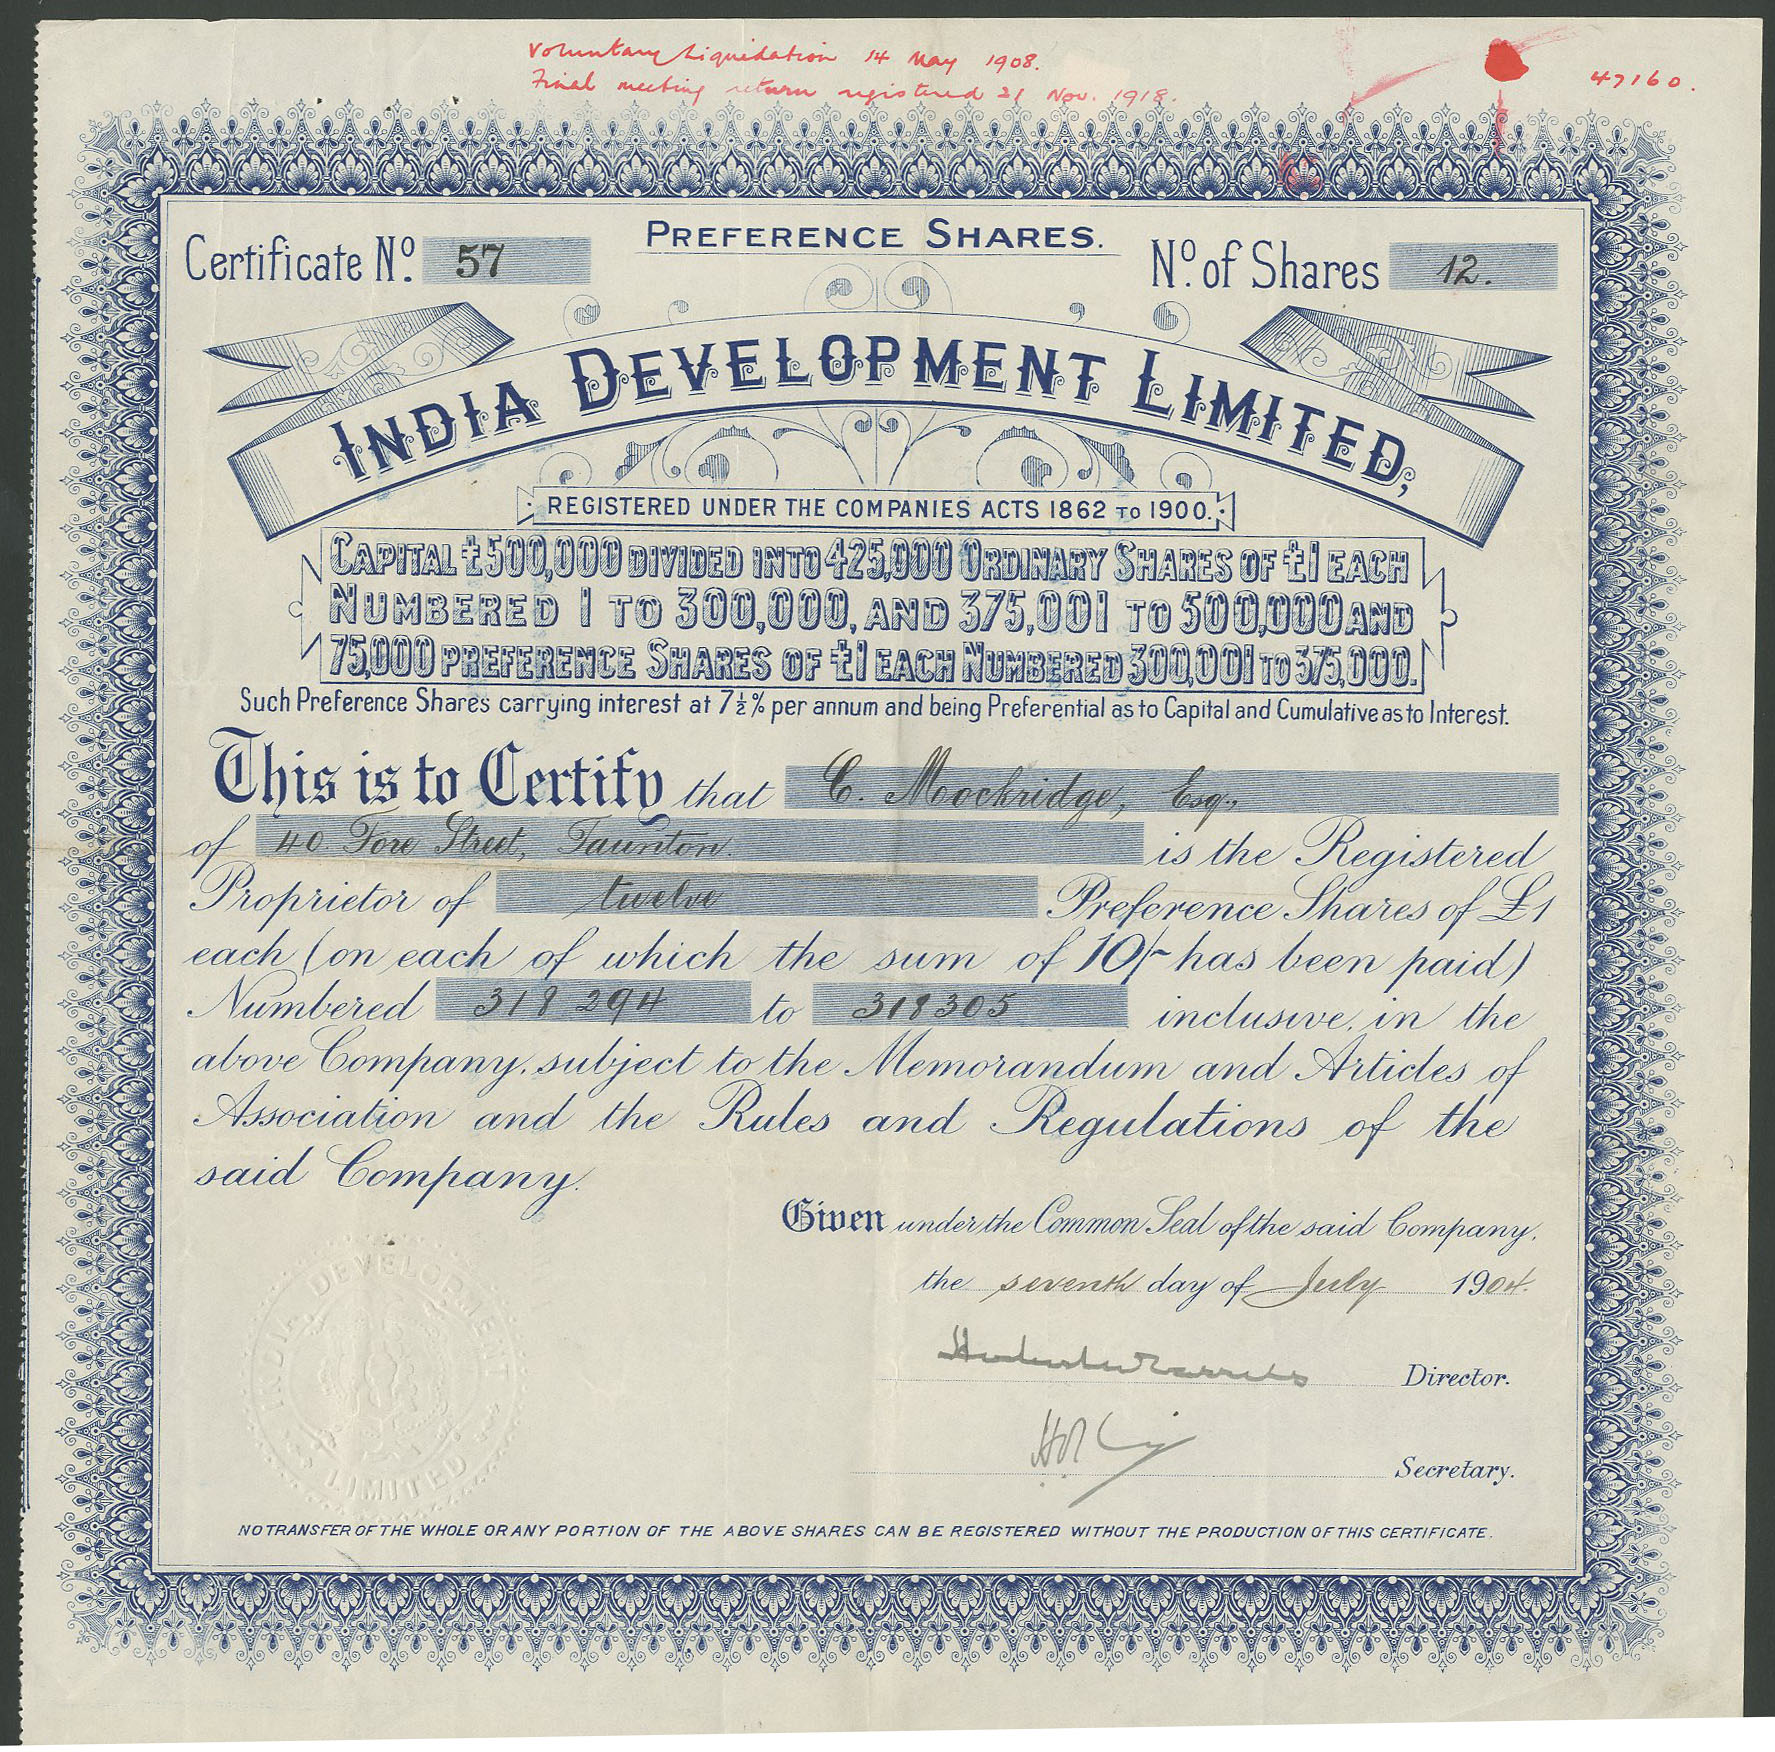 Voluntary Liquidation 14 May 1908.
Final meeting return registered 21 Nov. 1918.
47160.
PREFERENCE SHARES.
Certificate No. 57
No. of Shares 12.
INDIA DEVELOPMENT LIMITED,
REGISTERED UNDER THE COMPANIES ACTS 1862 TO 1900.
CAPITAL £500,000 DIVIDED INTO 425,000 ORDINARY SHARES OF £1 EACH
NUMBERED 1 TO 300,000, AND 375,001 TO 500,000 AND
75,000 PREFERENCE SHARES OF £1 EACH NUMBERED 300,001 TO 375,000.
Such Preference Shares carrying interest at 7½% per annum and being Preferential as to Capital and Cumulative as to Interest.
This is to Certify that C. Mockridge, Esq.,
of 40. Fore Street, Taunton. is the Registered
Proprietor of twelve Preference Shares of £1
each (on each of which the sum of 10/- has been paid)
Numbered 318 294 to 318305 inclusive, in the
above Company, subject to the Memorandum and Articles of
Association and the Rules and Regulations of the
said Company.
Given under the Common Seal of the said Company,
the seventh day of July 1904.
Director.
Secretary.
INDIA DEVELOPMENT
LIMITED
NO TRANSFER OF THE WHOLE OR ANY PORTION OF THE ABOVE SHARES CAN BE REGISTERED WITHOUT THE PRODUCTION OF THIS CERTIFICATE.